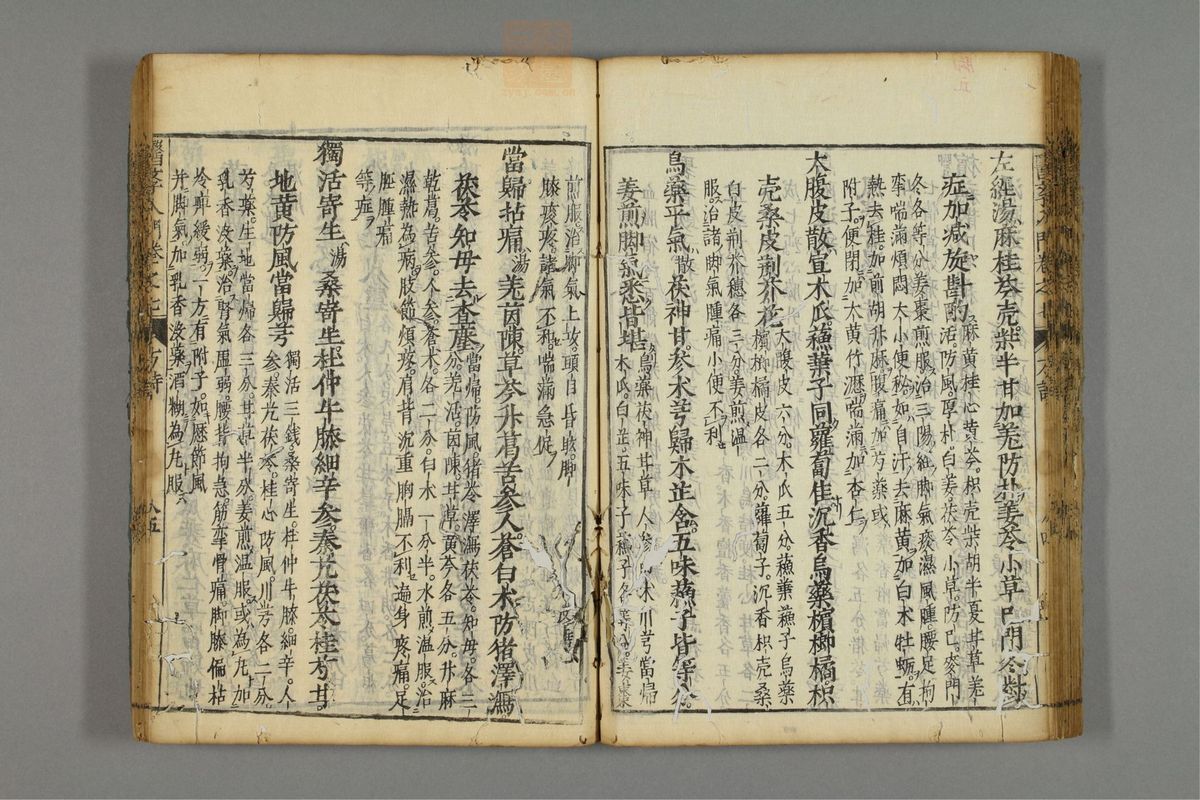 左經湯麻桂芩壳柴半甘加羌防朴羊苓小草巳門冬對
症加减旋斟酌麻黄桂心黄芩枳壳柴胡半夏甘草羌
活防風厚朴白姜茯苓小草防巳麥門
冬各等分姜棗煎服治三陽經脚氣痰濕風腫腰足拘
孿喘滿煩悶大小便秘如自汗去麻黄加白木牡蛎有
熱去桂加前胡升麻腹痛加芍藥或
附子便閉加大黄竹瀝喘滿加杏仁
大腹皮散宣木瓜蘓葉子同蘿蔔佳沉香烏藥檳榔橘枳
壳桑皮荆芥花大腹皮六分木瓜五分蘓葉蘓子烏藥
檳榔橘皮各二分蘿蔔子沉香枳壳桑
白皮荆芥穗各三分姜煎温
服治諸脚氣腫痛小便不利
烏藥平氣散茯神甘參木芎歸木芷含五味蘓子皆等分
姜煎脚氣烏藥茯神甘草人參白木川芎當歸
木瓜白芷五味子蘓子各等分姜棗
煎服治脚氣上攻頭目昏眩脚
膝痠疼諸氣不和喘滿急促
當歸拈痛湯羌茵陳草芩升葛苦參人蒼白木防猪澤瀉
茯苓知母去查塵當歸防風猪苓澤瀉茯苓知母各三
分羌活茵陳甘草黄芩各五分升麻
乾葛苦參人參蒼木各二分白木一分半水煎温服治
濕熱為病肢節煩疼肩背沉重胸膈不利遍身疼痛足
脛腫痛
等症
獨活寄生湯桑寄生杜仲牛膝細辛參秦艽茯苓桂方甘
地黄防風當歸芎獨活三錢桑寄生杜仲牛膝細辛人
參秦艽茯苓桂心防風川芎各二分
芍藥生地當歸各三分甘草半分姜煎温服或為丸加
乳香没藥治腎氣虚弱腰背拘急筋孿骨痛脚膝偏枯
冷痺緩弱一方有附子如歷節風
并脚氣加乳香没藥酒糊為丸服
方詩
八五